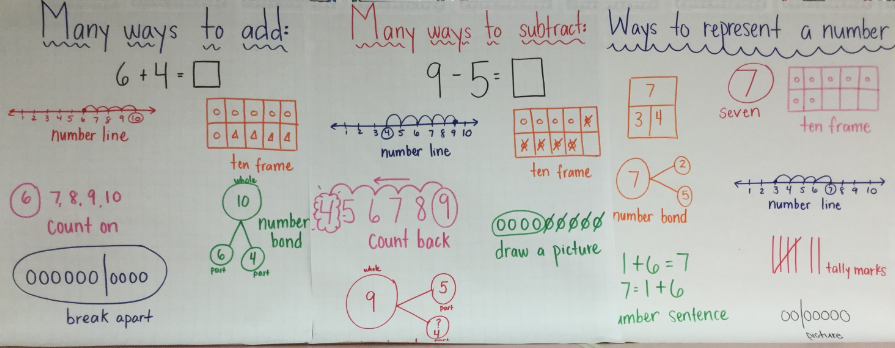 Many ways to add:
6 + 4 = □
1 2 3 4 5 6 7 8 9 10
number line
ten frame
6 7, 8, 9, 10
Count on
whole
10
6 4
part part
number
bond
break apart
Many ways to subtract:
9 - 5 = □
1 2 3 4 5 6 7 8 9 10
number line
ten frame
4 5 6 7 8 9
Count back
draw a picture
whole
9
5
part
?
4
part
Ways to represent a number
7
3 4
7
seven
ten frame
7
2
5
number bond
1 2 3 4 5 6 7 8 9 10
number line
1 + 6 = 7
7 = 1 + 6
umber sentence
tally marks
picture